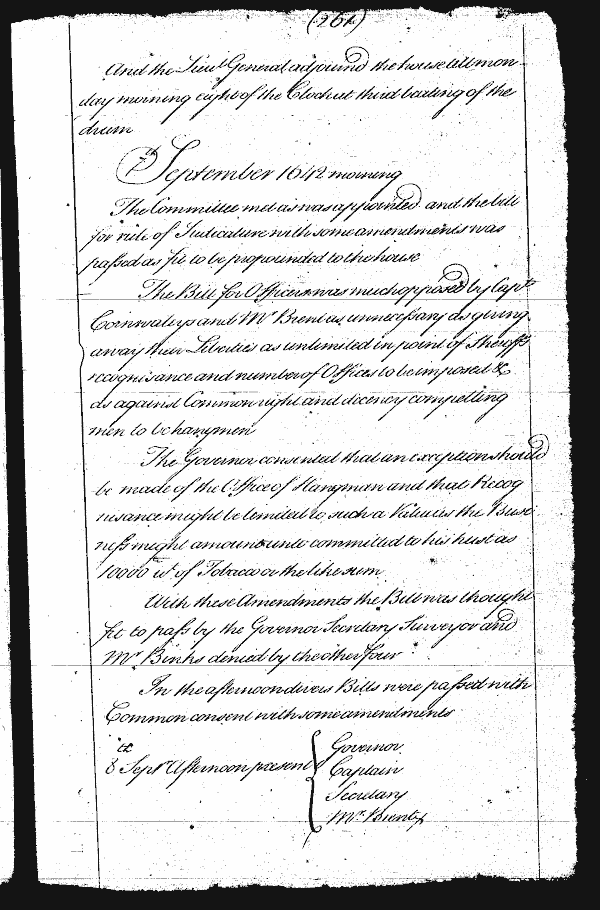 (261)
And the Lieut General adjourned the house till mon-
day morning eight of the Clock at third beating of the
drum
7th September 1642 morning
The Committee met as was appointed and the bill
for rule of Judicature with some amendments was
passed as fit to be propounded to the house
The Bill for Officers was much opposed by Capt
Cornwaleys and Mr Brent as unnecessary as giving
away their Liberties as unlimited in point of Sheriffs
recognisance and number of Offices to be imposed &c
as against Common right and decency compelling
men to be hangmen
The Governor consented that an exception should
be made of the Office of Hangman and that Recog
nisance might be limited to such a as the Busi
ness might amount unto committed to his trust as
10000 wt of Tobacco or the like sum
With these Amendments the Bill was thought
fit to pass by the Governor Secretary Surveyor and
Mr Binks denied by the other four
In the afternoon divers Bills were passed with
Common consent with some amendments
8th Sept Afternoon present
Governor
Captain
Secretary
Mr Brent